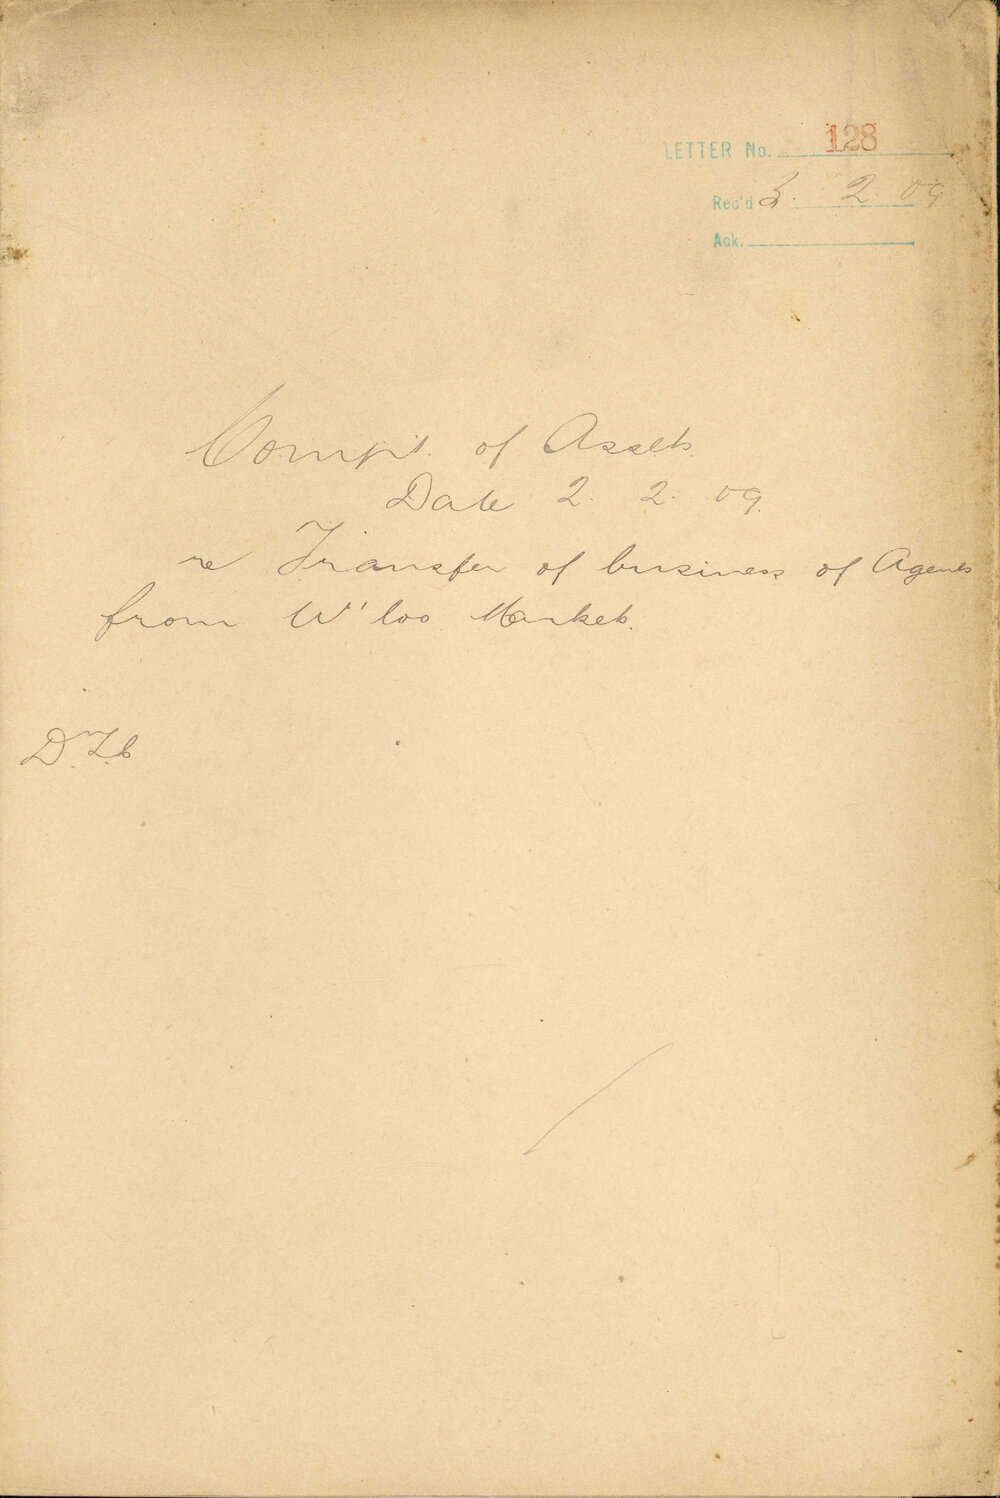 LETTER No. 128
Rec'd 3. 2. 09
Ack.
Compt. of Assets
Date 2. 2. 09.
re Transfer of business of Agents
from W'loo Markets.